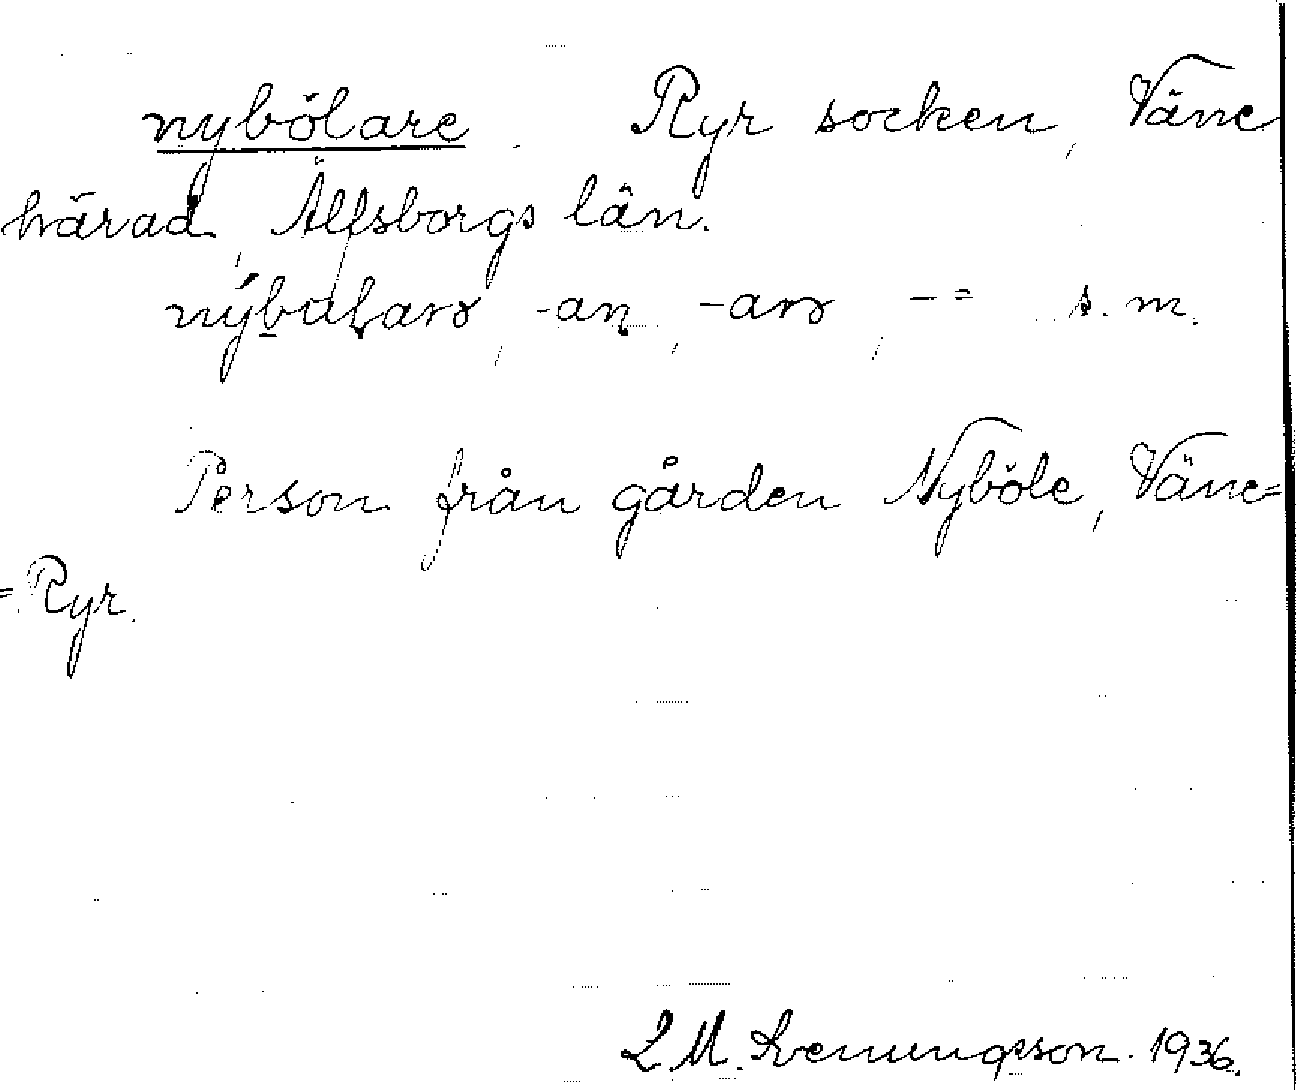 nybölare. Ryr socken, Väne
härad, Älfsborgs län.
-an, -arə, -= s. m.
Person från gården Nyböle, Väne=
=Ryr.
L M. Svenungsson. 1936.